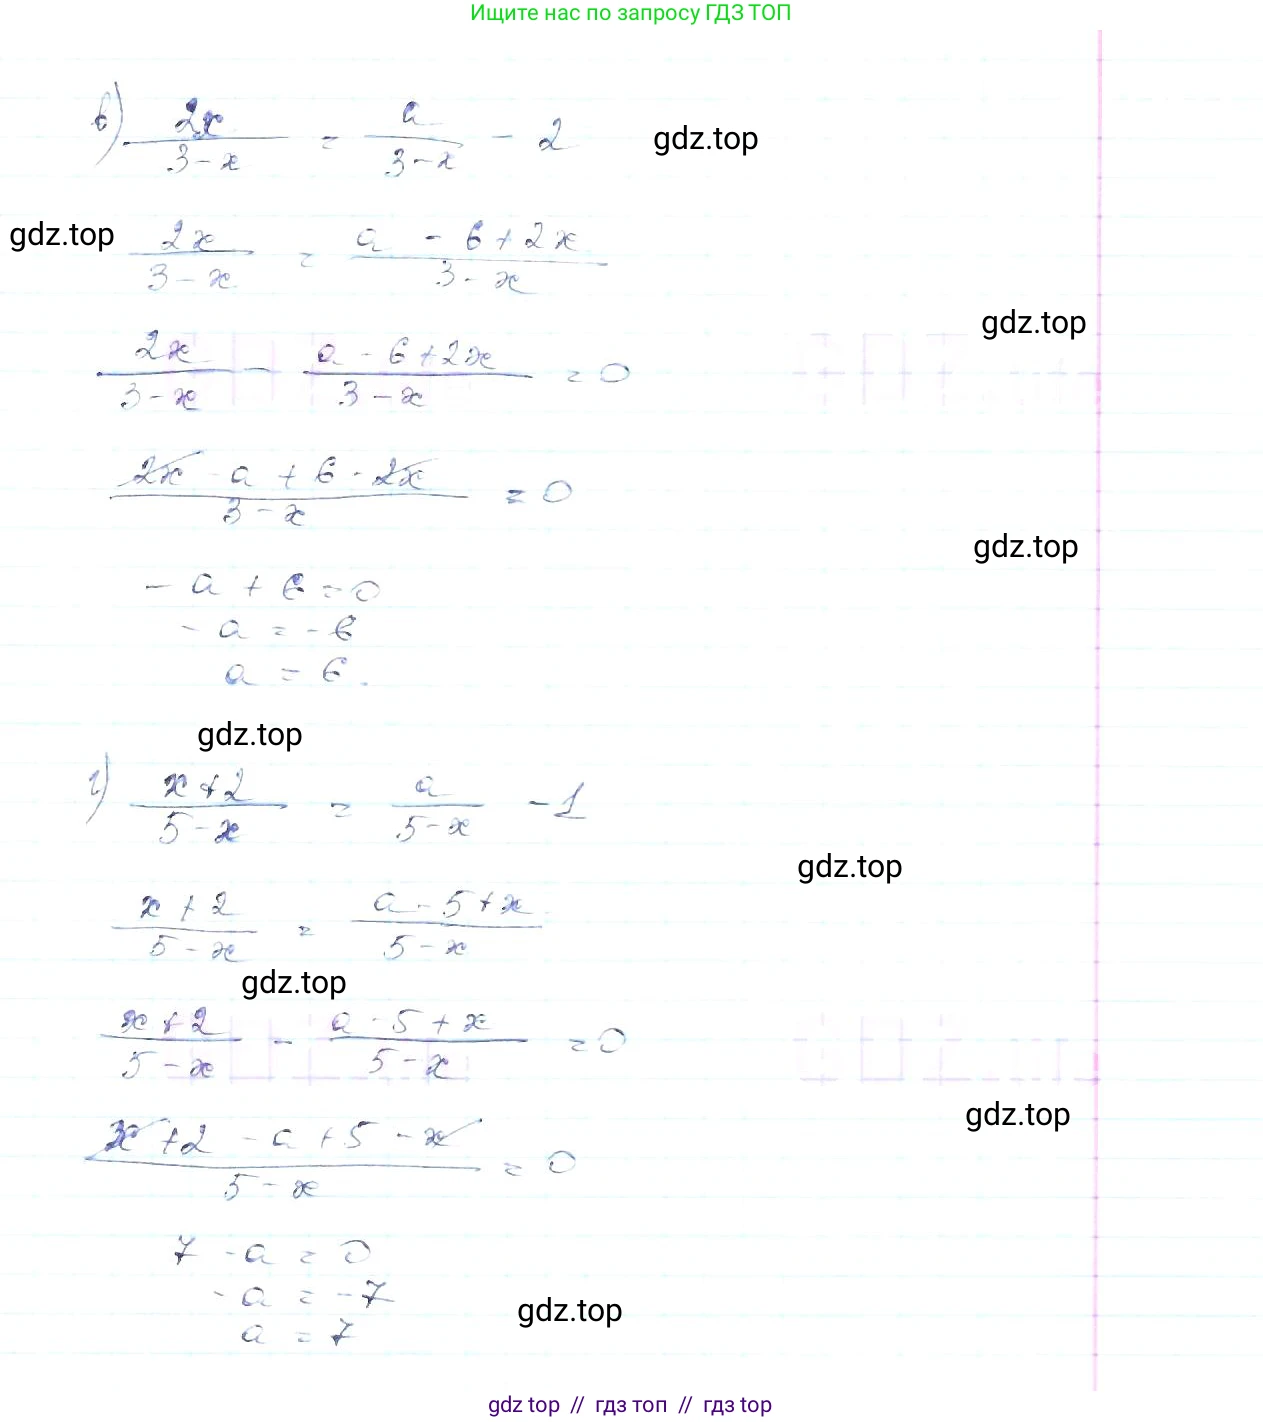 Ищите нас по запросу ГДЗ ТОП
в) 2x/(3-x) = a/(3-x) - 2
gdz.top
gdz.top
2x/(3-x) = (a - 6 + 2x)/(3-x)
gdz.top
2x/(3-x) - (a - 6 + 2x)/(3-x) = 0
(2x - a + 6 - 2x)/(3-x) = 0
gdz.top
- a + 6 = 0
- a = - 6
a = 6.
gdz.top
г) (x+2)/(5-x) = a/(5-x) - 1
gdz.top
(x+2)/(5-x) = (a - 5 + x)/(5-x)
gdz.top
(x+2)/(5-x) - (a - 5 + x)/(5-x) = 0
gdz.top
(x + 2 - a + 5 - x)/(5-x) = 0
7 - a = 0
- a = -7
gdz.top
a = 7
gdz top // гдз топ // гдз top